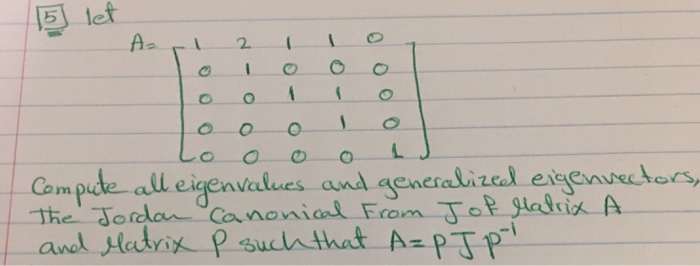 5 let
A= 1 2 1 1 0
0 1 0 0 0
0 0 1 1 0
0 0 0 1 0
0 0 0 0 1
Compute all eigenvalues and generalized eigenvectors,
The Jordan Canonical From J of Matrix A
and Matrix P such that A=PJP⁻¹